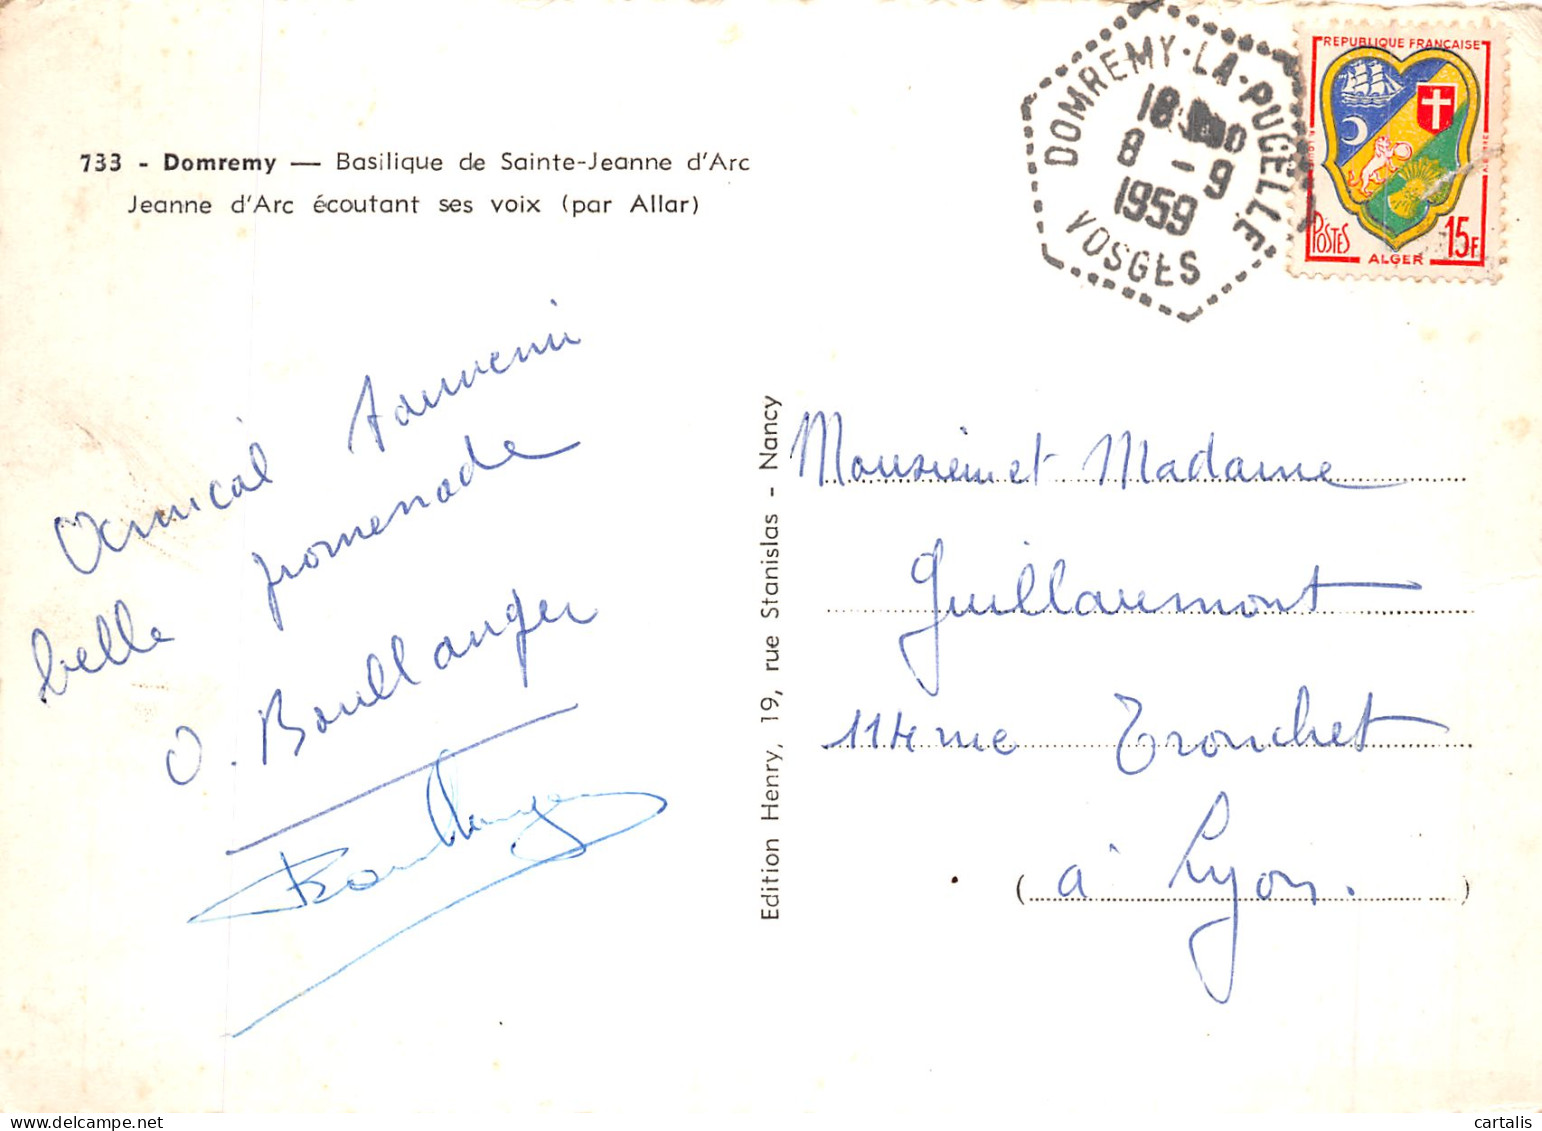 733 - Domremy — Basilique de Sainte-Jeanne d'Arc
Jeanne d'Arc écoutant ses voix (par Allar)
DOMREMY-LA-PUCELLE
18
8 - 9
1959
VOSGES
REPUBLIQUE FRANÇAISE
POSTES
ALGER
15F
Amical souvenir
belle promenade
O. Boullanger
Boullanger
Edition Henry, 19, rue Stanislas - Nancy
Monsieur et Madame
Guillaumont
114 rue Tronchet
(à Lyon.)
cartalis